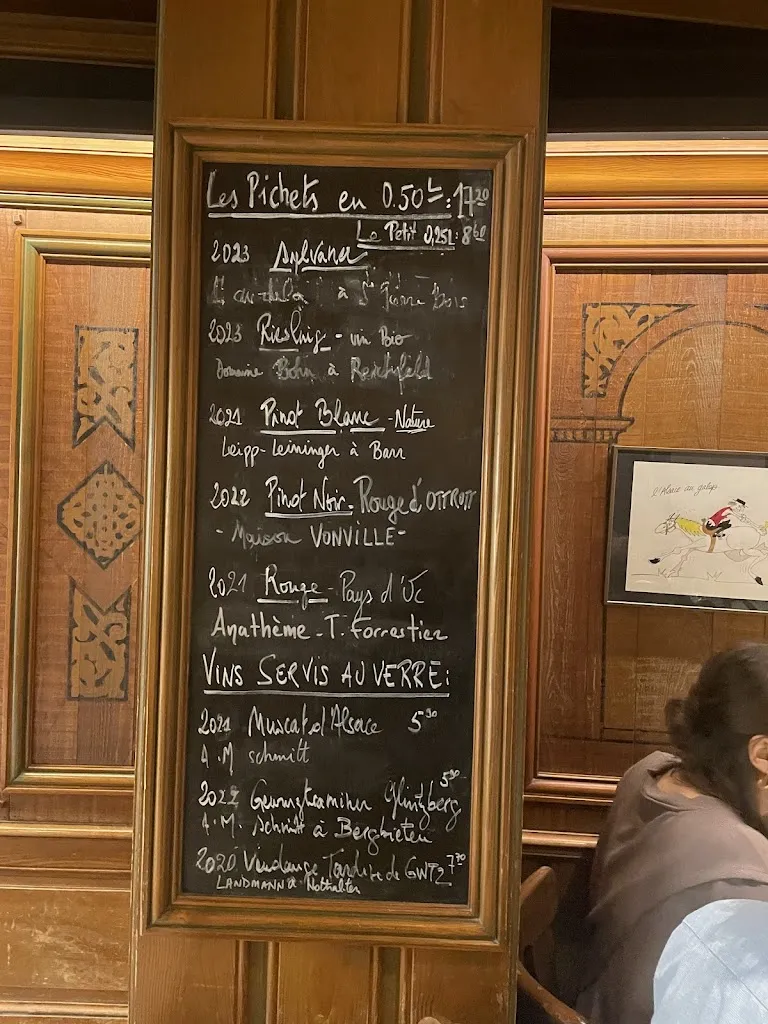 Les Pichets en 0.50L: 17 20
Le Petit 0,25L: 8 60
2023 Sylvaner
à St Jean
2023 Riesling - vin Bio
Domaine Bohn à Reichsfeld
2021 Pinot Blanc - Nature
Leipp-Leininger à Barr
2022 Pinot Noir - Rouge d'OTTROTT
- Maison VONVILLE -
2021 Rouge - Pays d'Oc
Anathème - T. Forrestier
VINS SERVIS AU VERRE:
2021 Muscat d'Alsace 5 90
A.M schmitt
2022 Gewurztraminer Glintzberg 5 90
A.M. Schmitt à Bergbieten
2020 Vendange Tardive de GWTZ 7 70
LANDMANN à Nothalten
l'Alsace au galop